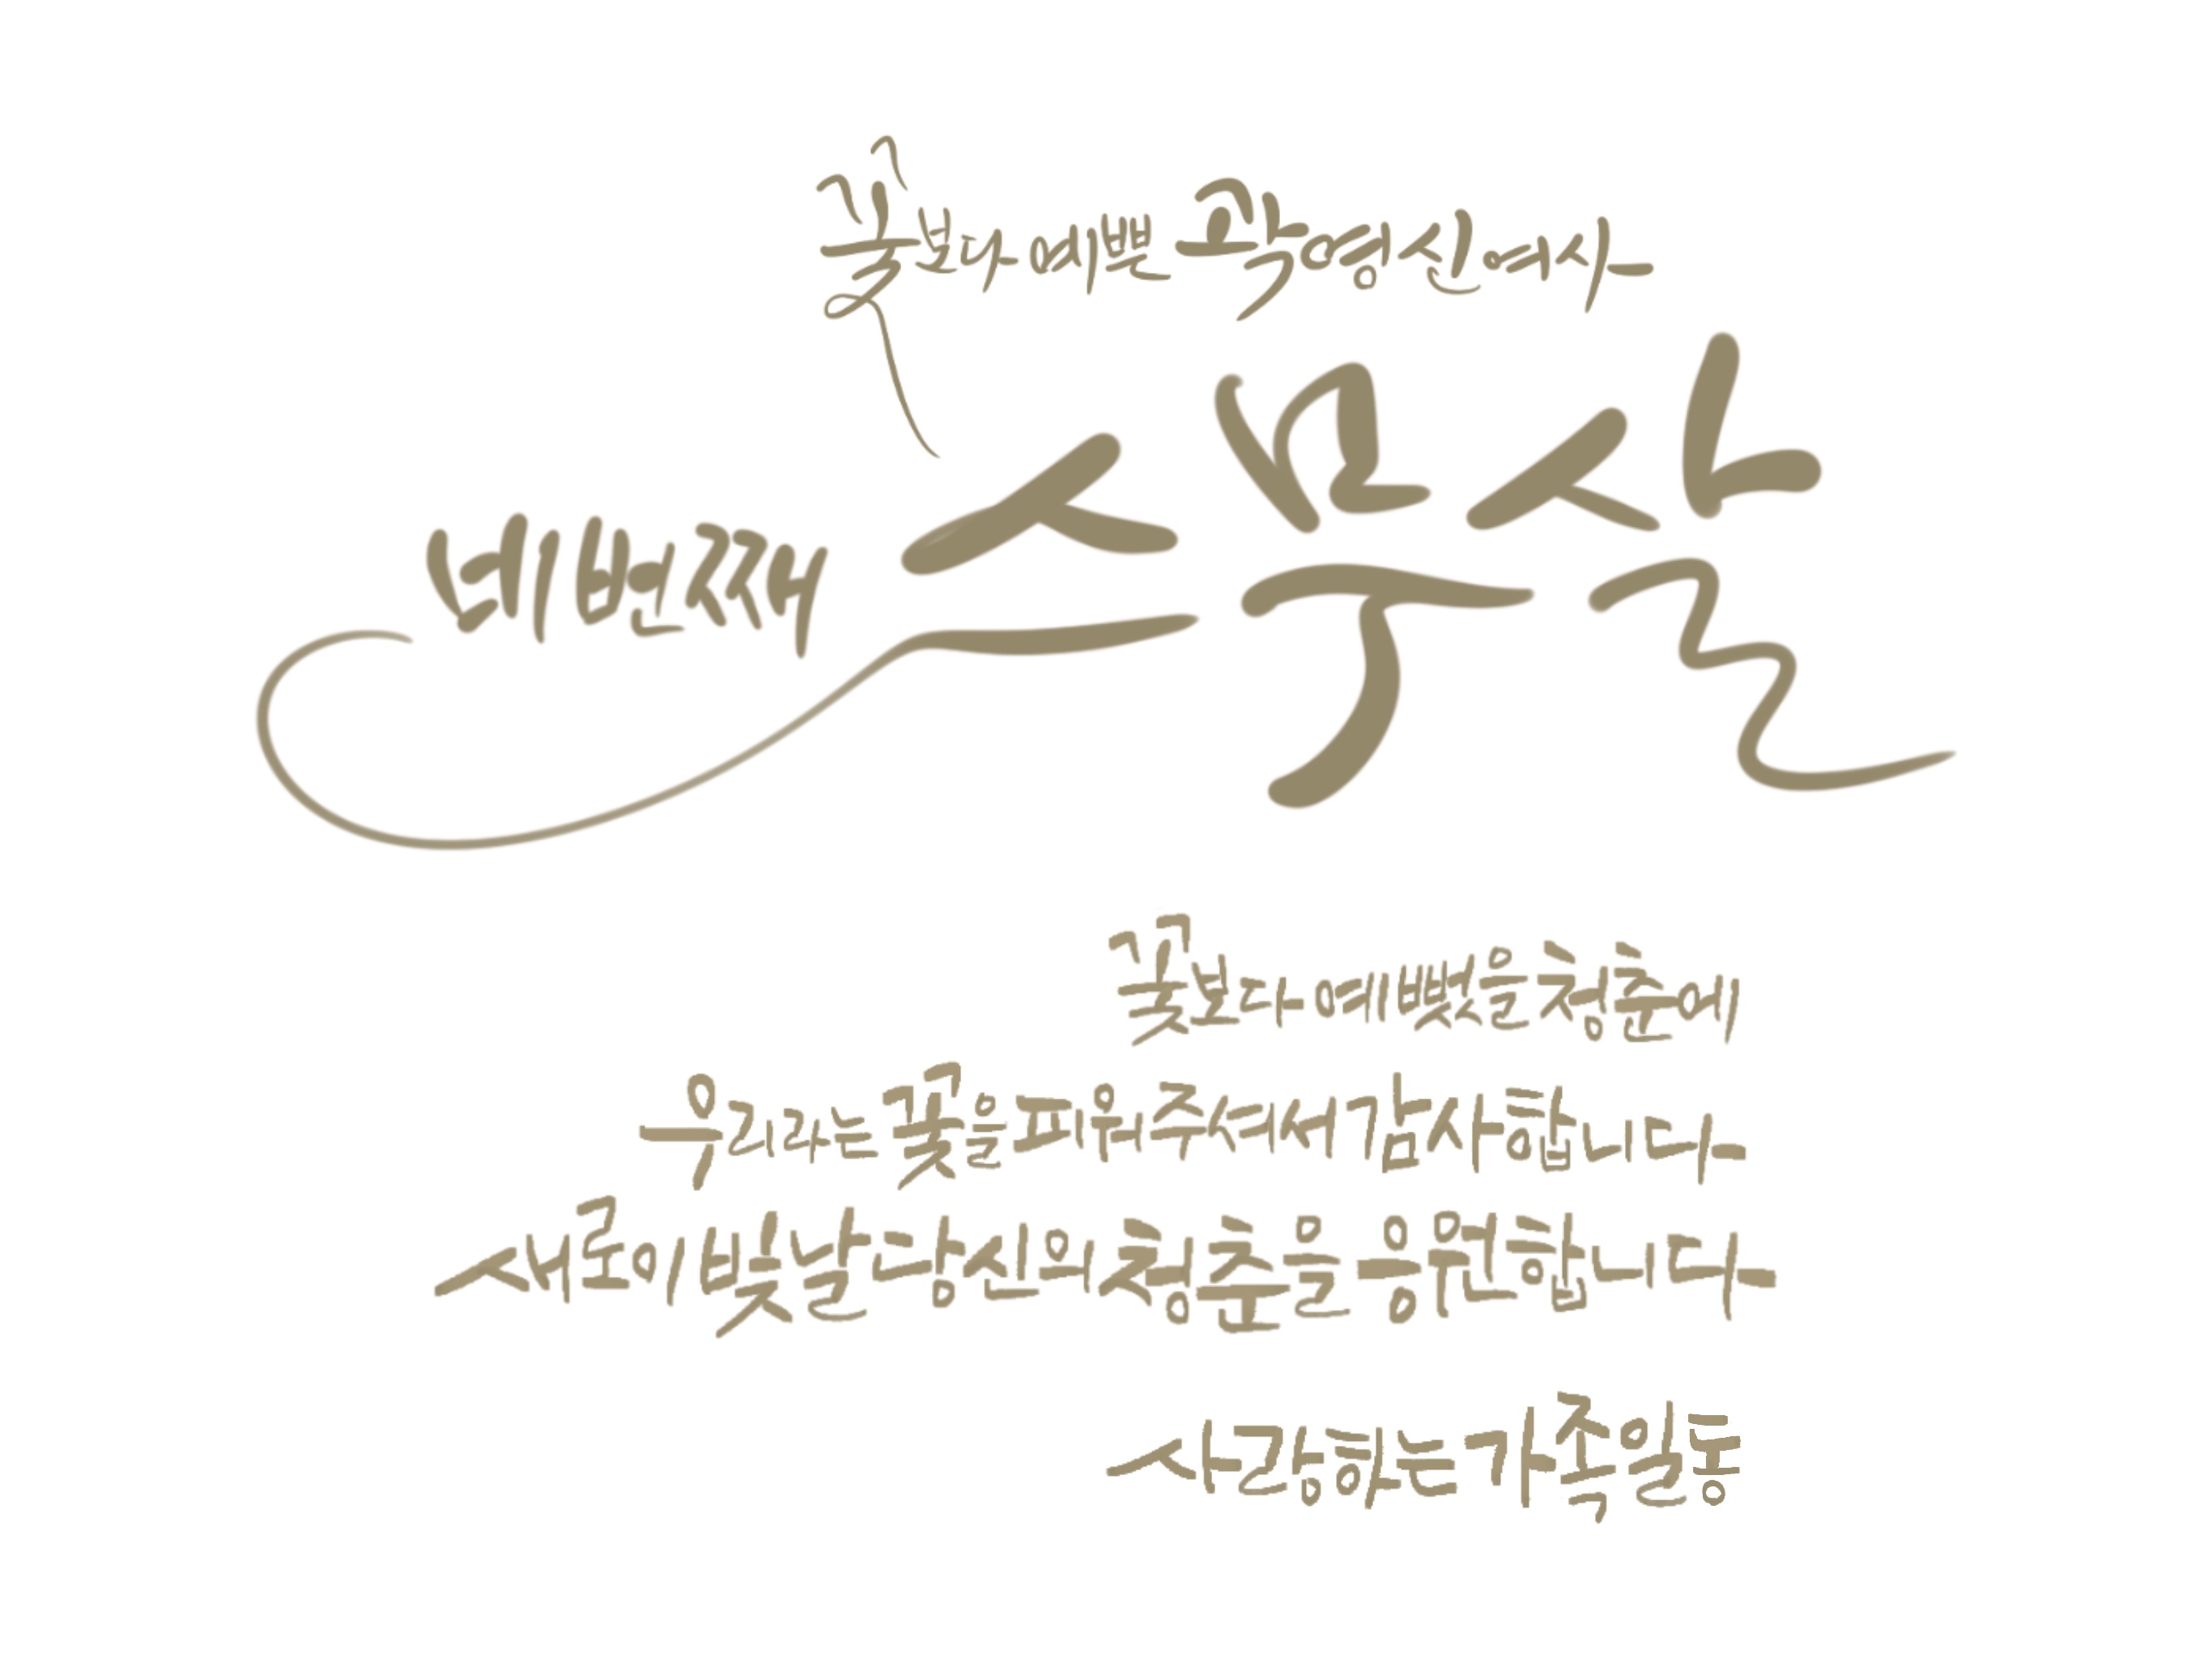 꽃보다 예쁜 곽영신 여사
네번째 스무살
꽃보다 예뻤을 청춘에
우리라는 꽃을 피워주셔서 감사합니다
새로이 빛날 당신의 청춘을 응원합니다
사랑하는 가족일동